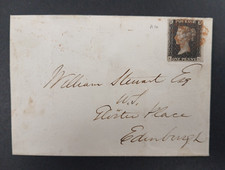 POSTAGE
ONE PENNY
William Stewart Esq
W.S.
Place
Edinburgh